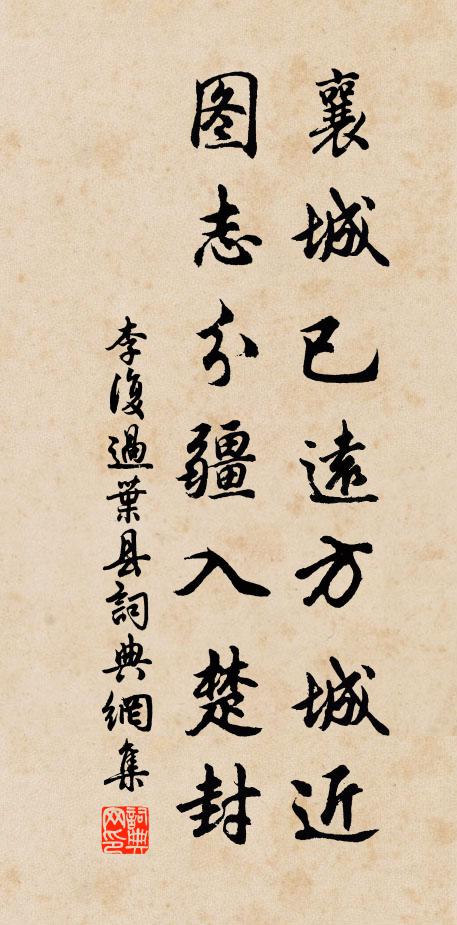 襄城已遠方城近
图志分疆入楚封
李復過葉县詞典網集
詞典网印